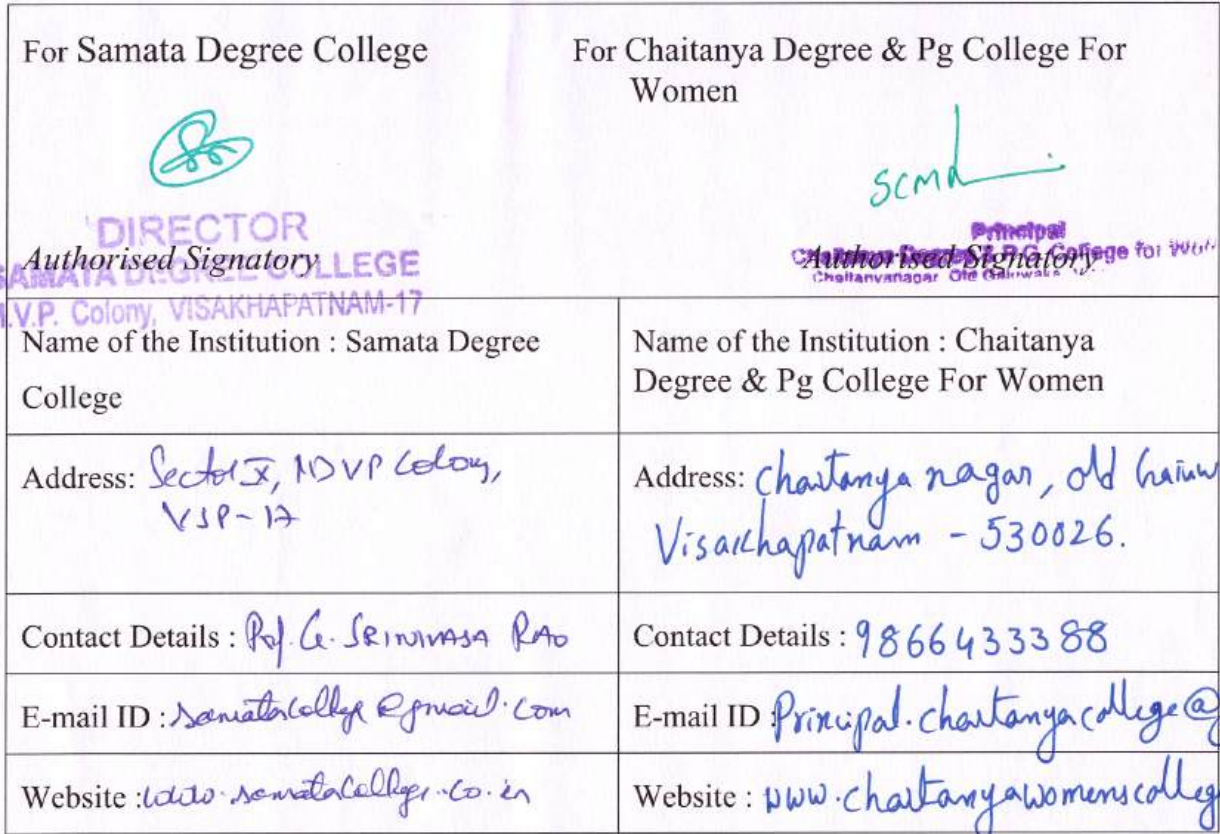 For Samata Degree College
DIRECTOR
Authorised Signatory
SAMATA DEGREE COLLEGE
M.V.P. Colony, VISAKHAPATNAM-17
For Chaitanya Degree & Pg College For
Women
Principal
Authorised Signatory
& P.G. College for
Name of the Institution : Samata Degree
College
Name of the Institution : Chaitanya
Degree & Pg College For Women
Address: Sector X, MVP Colony,
VSP-17
Address: Chaitanya nagar, old
Visakhapatnam - 530026.
Contact Details : Prof. G. SRINIVASA RAO
Contact Details : 9866433388
E-mail ID : samatacollege@gmail.com
E-mail ID Principal.chaitanyacollege@
Website : www.samatacollege.co.in
Website : www.chaitanyawomenscolleg